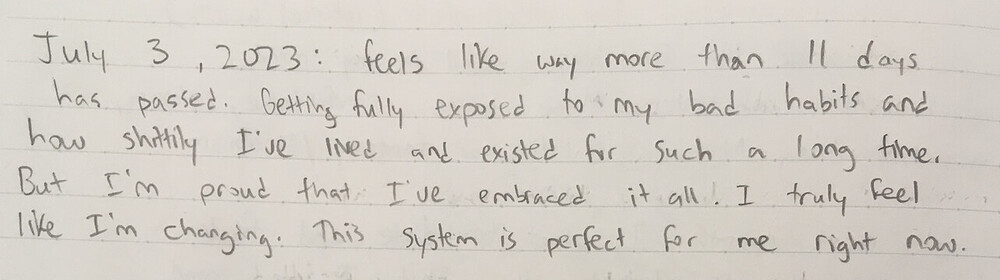 July 3, 2023: feels like way more than 11 days
has passed. Getting fully exposed to my bad habits and
how shittily I've lived and existed for such a long time.
But I'm proud that I've embraced it all! I truly feel
like I'm changing. This system is perfect for me right now.